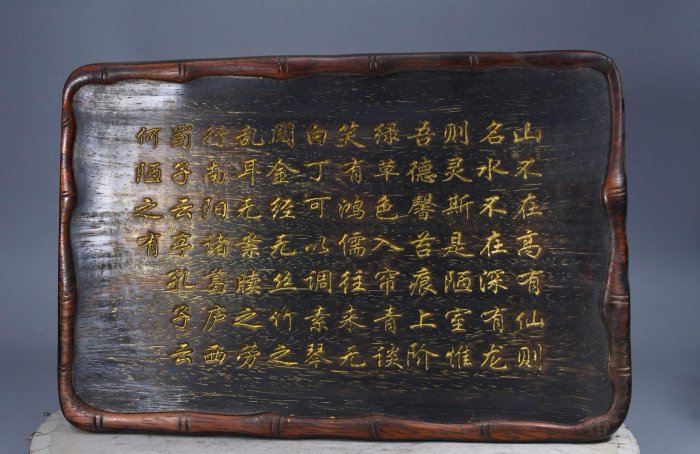 山不在高有仙则
名水不在深有龙
则灵斯是陋室惟
吾德馨苔痕上阶
绿草色入帘青谈
笑有鸿儒往来无
白丁可以调素琴
阅金经无丝竹之
乱耳无案牍之劳
行南阳诸葛庐西
蜀子云亭孔子云
何陋之有